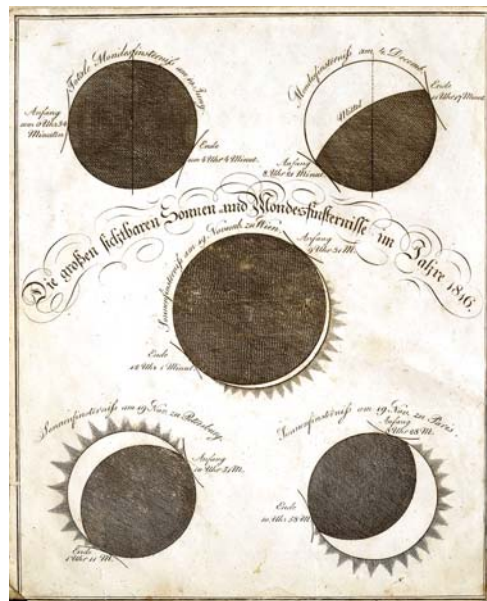 Totale Mondsfinsterniß am
Anfang
um 0 Uhr 34
Minuten
Ende
um 4 Uhr 4 Minut.
Mondsfinsterniß am 4 Decemb.
Ende
Minut.
Mittel
Anfang
8 Uhr Minut
Die großen sichtbaren Sonnen und Mondesfinsternisse im Jahre 1816.
Sonnenfinsterniß am 19. Novemb. zu Wien.
Anfang
9 Uhr M.
Ende
Uhr Minut
Sonnenfinsterniß am 19 Nov. zu Petersburg.
Anfang
Uhr M.
Ende
Uhr M.
Sonnenfinsterniß am 19 Nov. zu Paris.
Anfang
8 Uhr M.
Ende
10 Uhr 58 M.